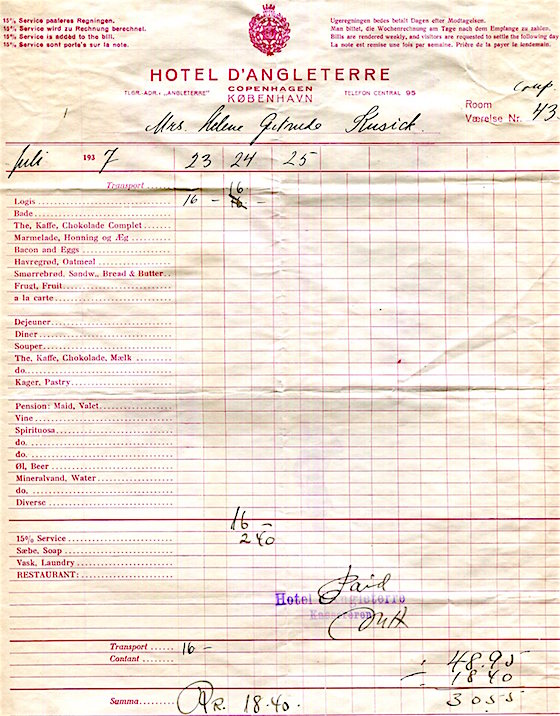 15% Service paaføres Regningen.
15% Service wird zu Rechnung berechnet.
15% Service is added to the bill.
15% Service sont porte's sur la note.
Ugeregningen bedes betalt Dagen efter Modtagelsen.
Man bittet, die Wochenrechnung am Tage nach dem Empfange zu zahlen.
Bills are rendered weekly, and visitors are requested to settle the following day
La note est remise une fois par semaine. Prière de payer le lendemain.
HOTEL D'ANGLETERRE
TLGR.-ADR.: „ANGLETERRE" COPENHAGEN TELEFON CENTRAL 95
KØBENHAVN
Room
Værelse Nr. 43
Mrs. Helene Gertrude Kusick.
Juli 1937 23 24 25
Transport 16
Logis 16 - 16 -
Bade
The, Kaffe, Chokolade Complet
Marmelade, Honning og Æg
Bacon and Eggs
Havregrød, Oatmeal
Smørrebrød, Sandw., Bread & Butter
Frugt, Fruit
a la carte
Dejeuner
Diner
Souper
The, Kaffe, Chokolade, Mælk
do.
Kager, Pastry
Pension: Maid, Valet
Vine
Spirituosa
do.
do.
Øl, Beer
Mineralvand, Water
do.
Diverse
16 -
15% Service 2 40
Sæbe, Soap
Vask, Laundry
RESTAURANT:
Paid
Hotel d'Angleterre
Transport 16 -
Contant 48.95
÷ 18 40
Summa Kr. 18.40. 30 55